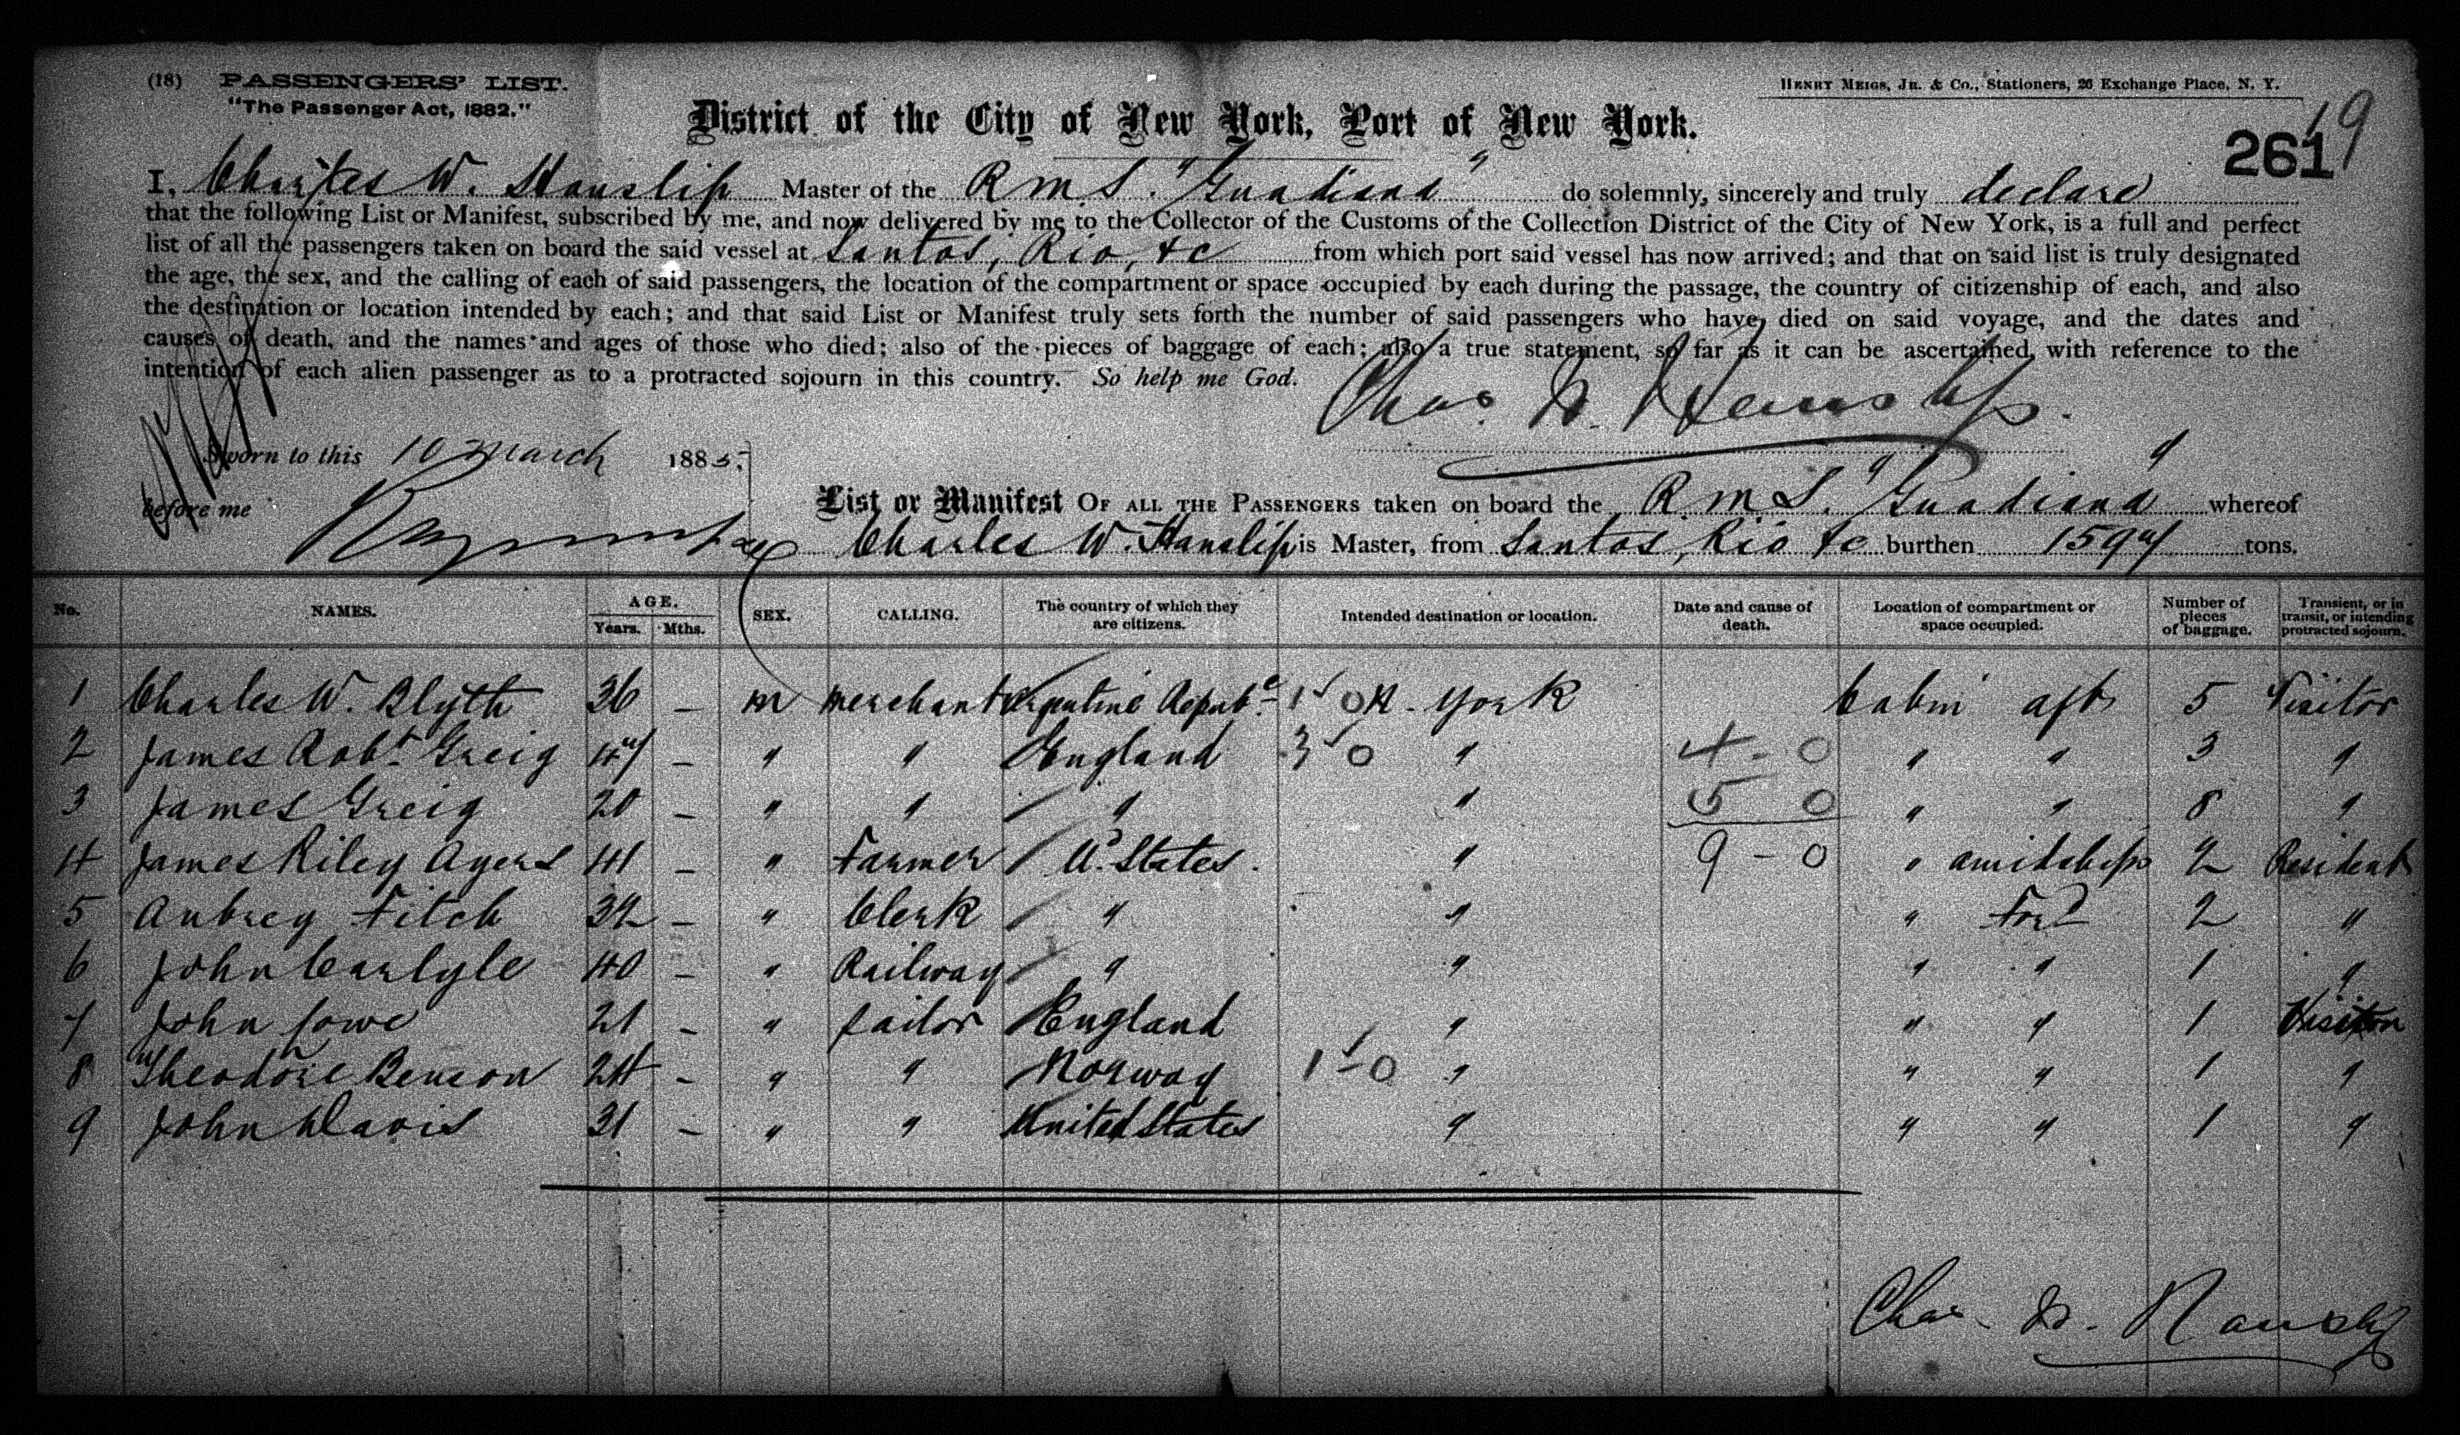 (18) PASSENGERS' LIST.
"The Passenger Act, 1882."
HENRY MEIGS, JR. & CO., Stationers, 26 Exchange Place, N. Y.
19
District of the City of New York, Port of New York.
261
I, Charles W. Hanslip Master of the R.M.S. "Guadiana" do solemnly, sincerely and truly declare
that the following List or Manifest, subscribed by me, and now delivered by me to the Collector of the Customs of the Collection District of the City of New York, is a full and perfect
list of all the passengers taken on board the said vessel at Santos, Rio, &c from which port said vessel has now arrived; and that on said list is truly designated
the age, the sex, and the calling of each of said passengers, the location of the compartment or space occupied by each during the passage, the country of citizenship of each, and also
the destination or location intended by each; and that said List or Manifest truly sets forth the number of said passengers who have died on said voyage, and the dates and
causes of death, and the names and ages of those who died; also of the pieces of baggage of each; also a true statement, so far as it can be ascertained, with reference to the
intention of each alien passenger as to a protracted sojourn in this country. So help me God.
Chas. W. Hanslip.
Sworn to this 10 March 1885,
before me
List or Manifest OF ALL THE PASSENGERS taken on board the R.M.S. "Guadiana" whereof
Charles W. Hanslip is Master, from Santos, Rio &c burthen 1594 tons.
No. NAMES. AGE. Years. Mths. SEX. CALLING. The country of which they are citizens. Intended destination or location. Date and cause of death. Location of compartment or space occupied. Number of pieces of baggage. Transient, or in transit, or intending protracted sojourn.
1 Charles W. Blyth 36 – M Merchant Argentine Repub.c 1 0 N. York Cabin aft 5 Visitor
2 James Robt. Greig 47 – " " England 3 0 " 4 - 0 " " 3 "
3 James Greig 20 – " " " " 5 0 " " 8 "
4 James Riley Ayers 41 – " Farmer U. States. " 9 - 0 " amidships 2 Resident
5 Aubrey Fitch 32 – " Clerk " " " For'd 2 "
6 John Carlyle 40 – " Railway " " " " 1 "
7 John Lowe 21 – " Sailor England " " " 1 Visitor
8 Theodore Benson 24 – " " Norway 1 - 0 " " " 1 "
9 John Davis 31 – " " United States " " " 1 "
Chas. W. Hanslip